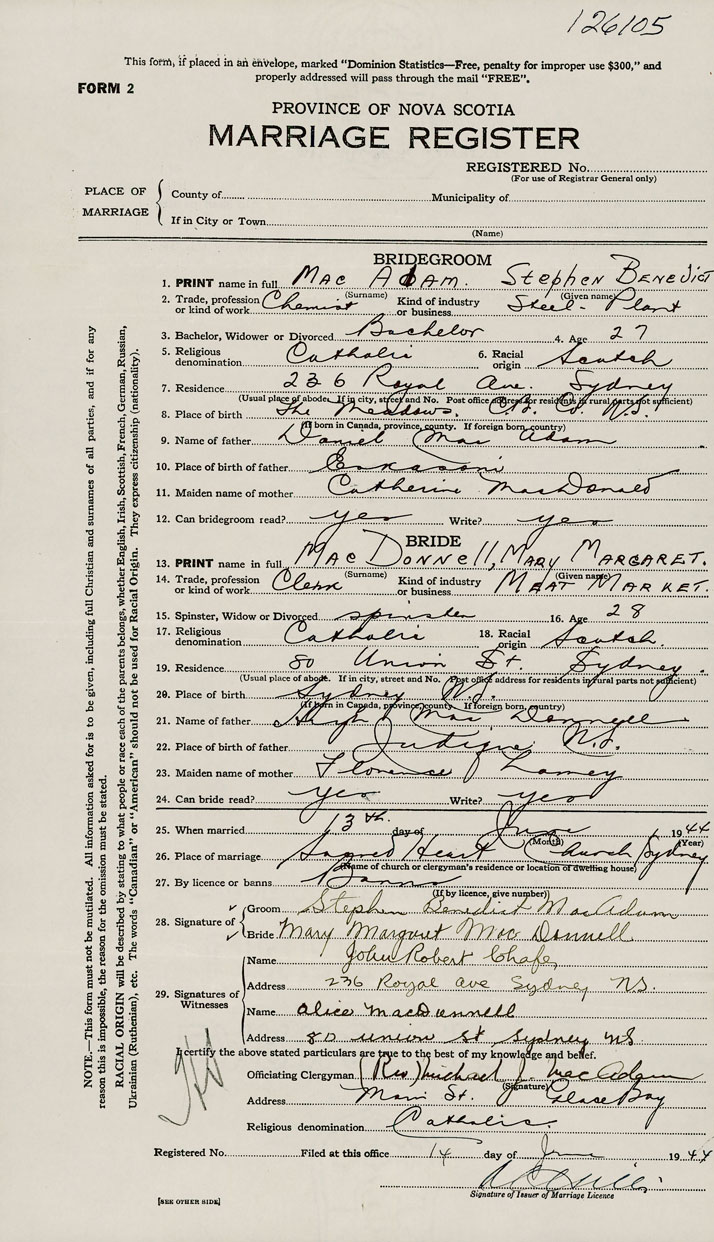 126105
This form, if placed in an envelope, marked "Dominion Statistics—Free, penalty for improper use $300," and
properly addressed will pass through the mail "FREE".
FORM 2
PROVINCE OF NOVA SCOTIA
MARRIAGE REGISTER
REGISTERED No.
(For use of Registrar General only)
PLACE OF MARRIAGE
County of Municipality of
If in City or Town
(Name)
BRIDEGROOM
1. PRINT name in full Mac Adam. Stephen Benedict
(Surname) (Given name)
2. Trade, profession or kind of work Chemist Kind of industry or business Steel-Plant
3. Bachelor, Widower or Divorced Bachelor 4. Age 27
5. Religious denomination Catholic 6. Racial origin Scotch
7. Residence 236 Royal Ave. Sydney
(Usual place of abode. If in city, street and No. Post office address for residents in rural parts not sufficient)
8. Place of birth The Meadows. C.B. Co. N.S.
(If born in Canada, province, county. If foreign born, country)
9. Name of father Daniel Mac Adam
10. Place of birth of father Eskasoni
11. Maiden name of mother Catherine MacDonald
12. Can bridegroom read? yes Write? yes
BRIDE
13. PRINT name in full Mac Donnell, Mary Margaret.
(Surname) (Given name)
14. Trade, profession or kind of work Clerk Kind of industry or business Meat Market.
15. Spinster, Widow or Divorced spinster 16. Age 28
17. Religious denomination Catholic 18. Racial origin Scotch.
19. Residence 80 Union St. Sydney.
(Usual place of abode. If in city, street and No. Post office address for residents in rural parts not sufficient)
20. Place of birth Sydney N.S.
(If born in Canada, province, county. If foreign born, country)
21. Name of father Hugh Mac Donnell
22. Place of birth of father Judique N.S.
23. Maiden name of mother Florence Lamey
24. Can bride read? yes Write? yes
25. When married 13th day of June 1944
(Month) (Year)
26. Place of marriage Sacred Heart Church Sydney
(Name of church or clergyman's residence or location of dwelling house)
27. By licence or banns Banns
(If by licence, give number)
28. Signature of
Groom Stephen Benedict MacAdam
Bride Mary Margaret Mac Donnell
29. Signatures of Witnesses
Name John Robert Chafe,
Address 236 Royal ave Sydney NS.
Name Alice MacDonnell
Address 80 union st Sydney NS
I certify the above stated particulars are true to the best of my knowledge and belief.
Officiating Clergyman (Rev) Michael J. MacAdam
(Signature)
Address Main St. Glace Bay
Religious denomination Catholic.
Registered No. Filed at this office 14 day of June 1944
Signature of Issuer of Marriage Licence
[SEE OTHER SIDE]
NOTE.—This form must not be mutilated. All information asked for is to be given, including full Christian and surnames of all parties, and if for any
reason this is impossible, the reason for the omission must be stated.
RACIAL ORIGIN will be described by stating to what people or race each of the parents belongs, whether English, Irish, Scottish, French, German, Russian,
Ukrainian (Ruthenian), etc. The words "Canadian" or "American" should not be used for Racial Origin. They express citizenship (nationality).